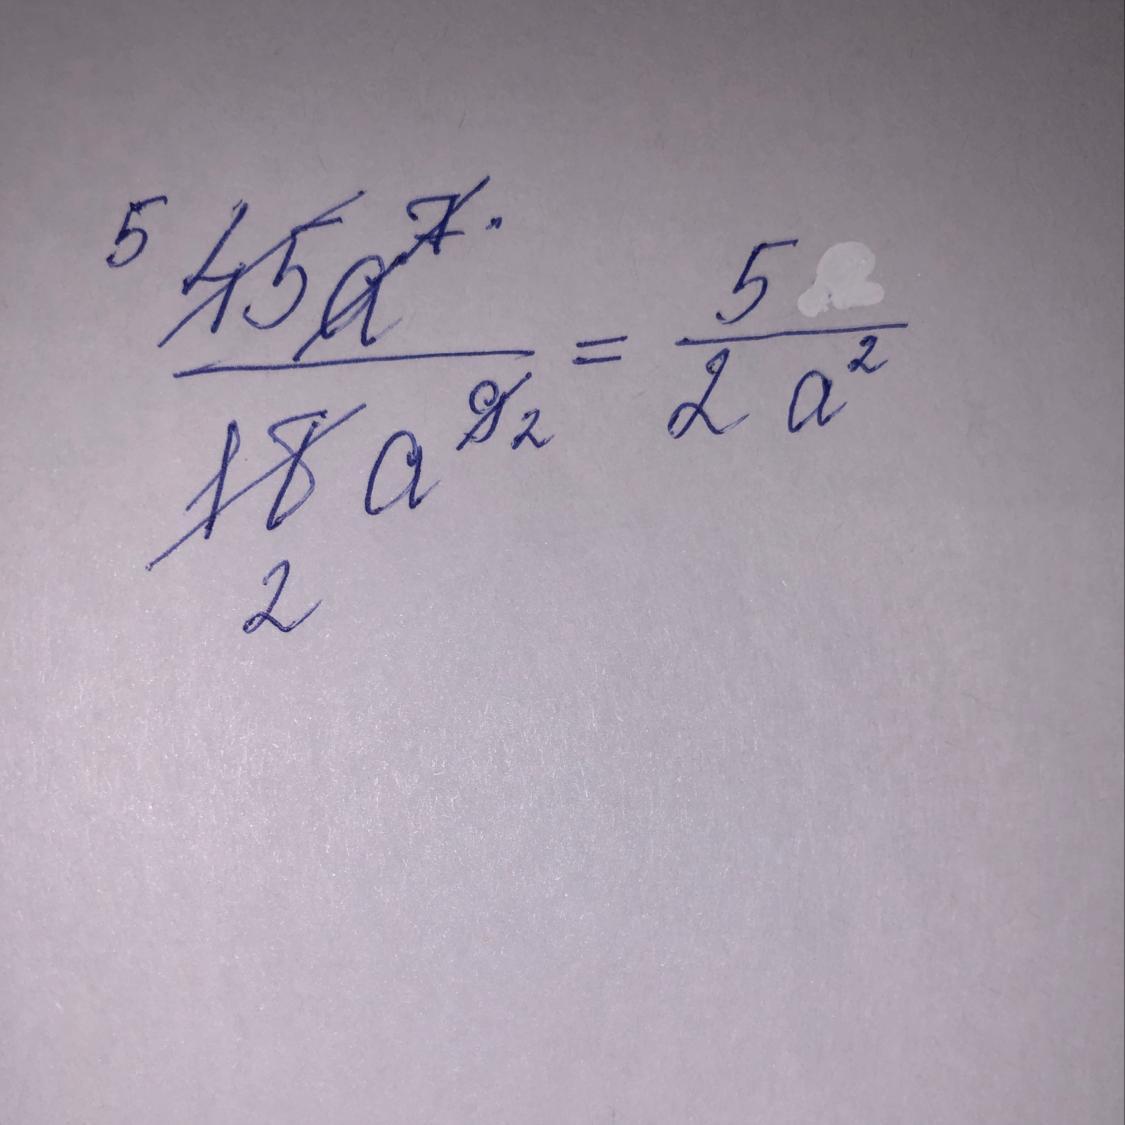 5 45a⁷ · / 18a⁹ 2 = 5 / 2a²
2